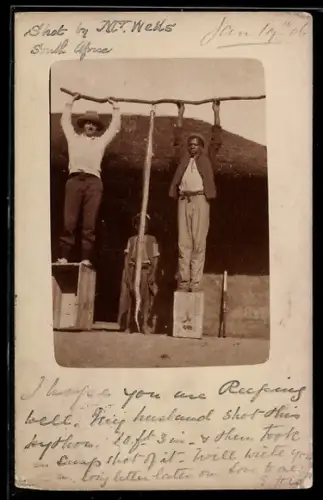 Shot by Mr. Wells
South Africa
Jan 19th 06
I hope you are Keeping
well. My husband shot this
python. 20 ft 3 in. & then took
a snap shot of it. Will write you
a long letter later on